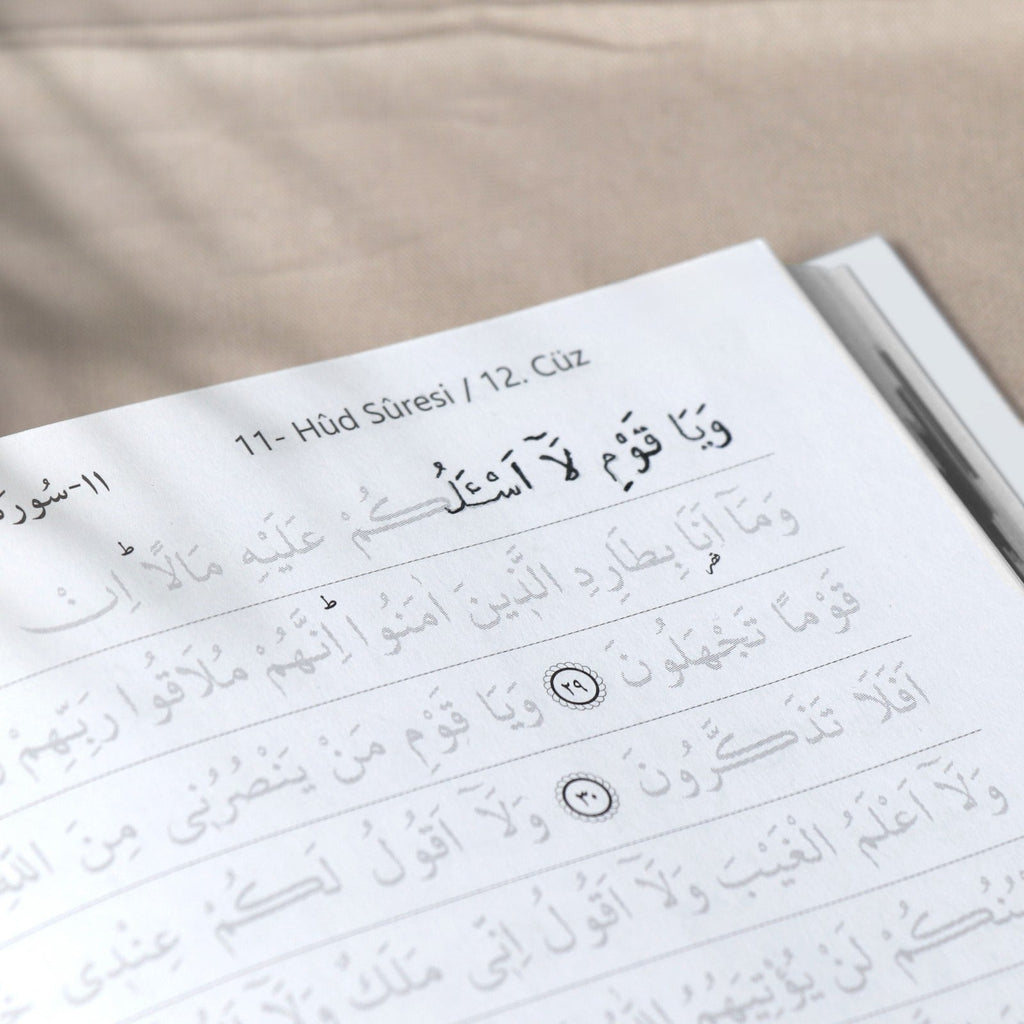 11- Hûd Sûresi / 12. Cüz
١١-سُورَة
وَيَا قَوْمِ لَٓا اَسْـَٔلُكُمْ عَلَيْهِ مَالًاؕ اِنْ
وَمَٓا اَنَا۬ بِطَارِدِ الَّذٖينَ اٰمَنُواؕ اِنَّهُمْ مُلَاقُوا رَبِّهِمْ
قَوْمًا تَجْهَلُونَ ﴿٢٩﴾ وَيَا قَوْمِ مَنْ يَنْصُرُنٖى مِنَ اللّٰهِ
اَفَلَا تَذَكَّرُونَ ﴿٣٠﴾ وَلَٓا اَقُولُ لَكُمْ عِنْدٖى
وَلَٓا اَعْلَمُ الْغَيْبَ وَلَٓا اَقُولُ اِنّٖى مَلَكٌ وَلَٓا
لَنْ يُؤْتِيَهُمُ